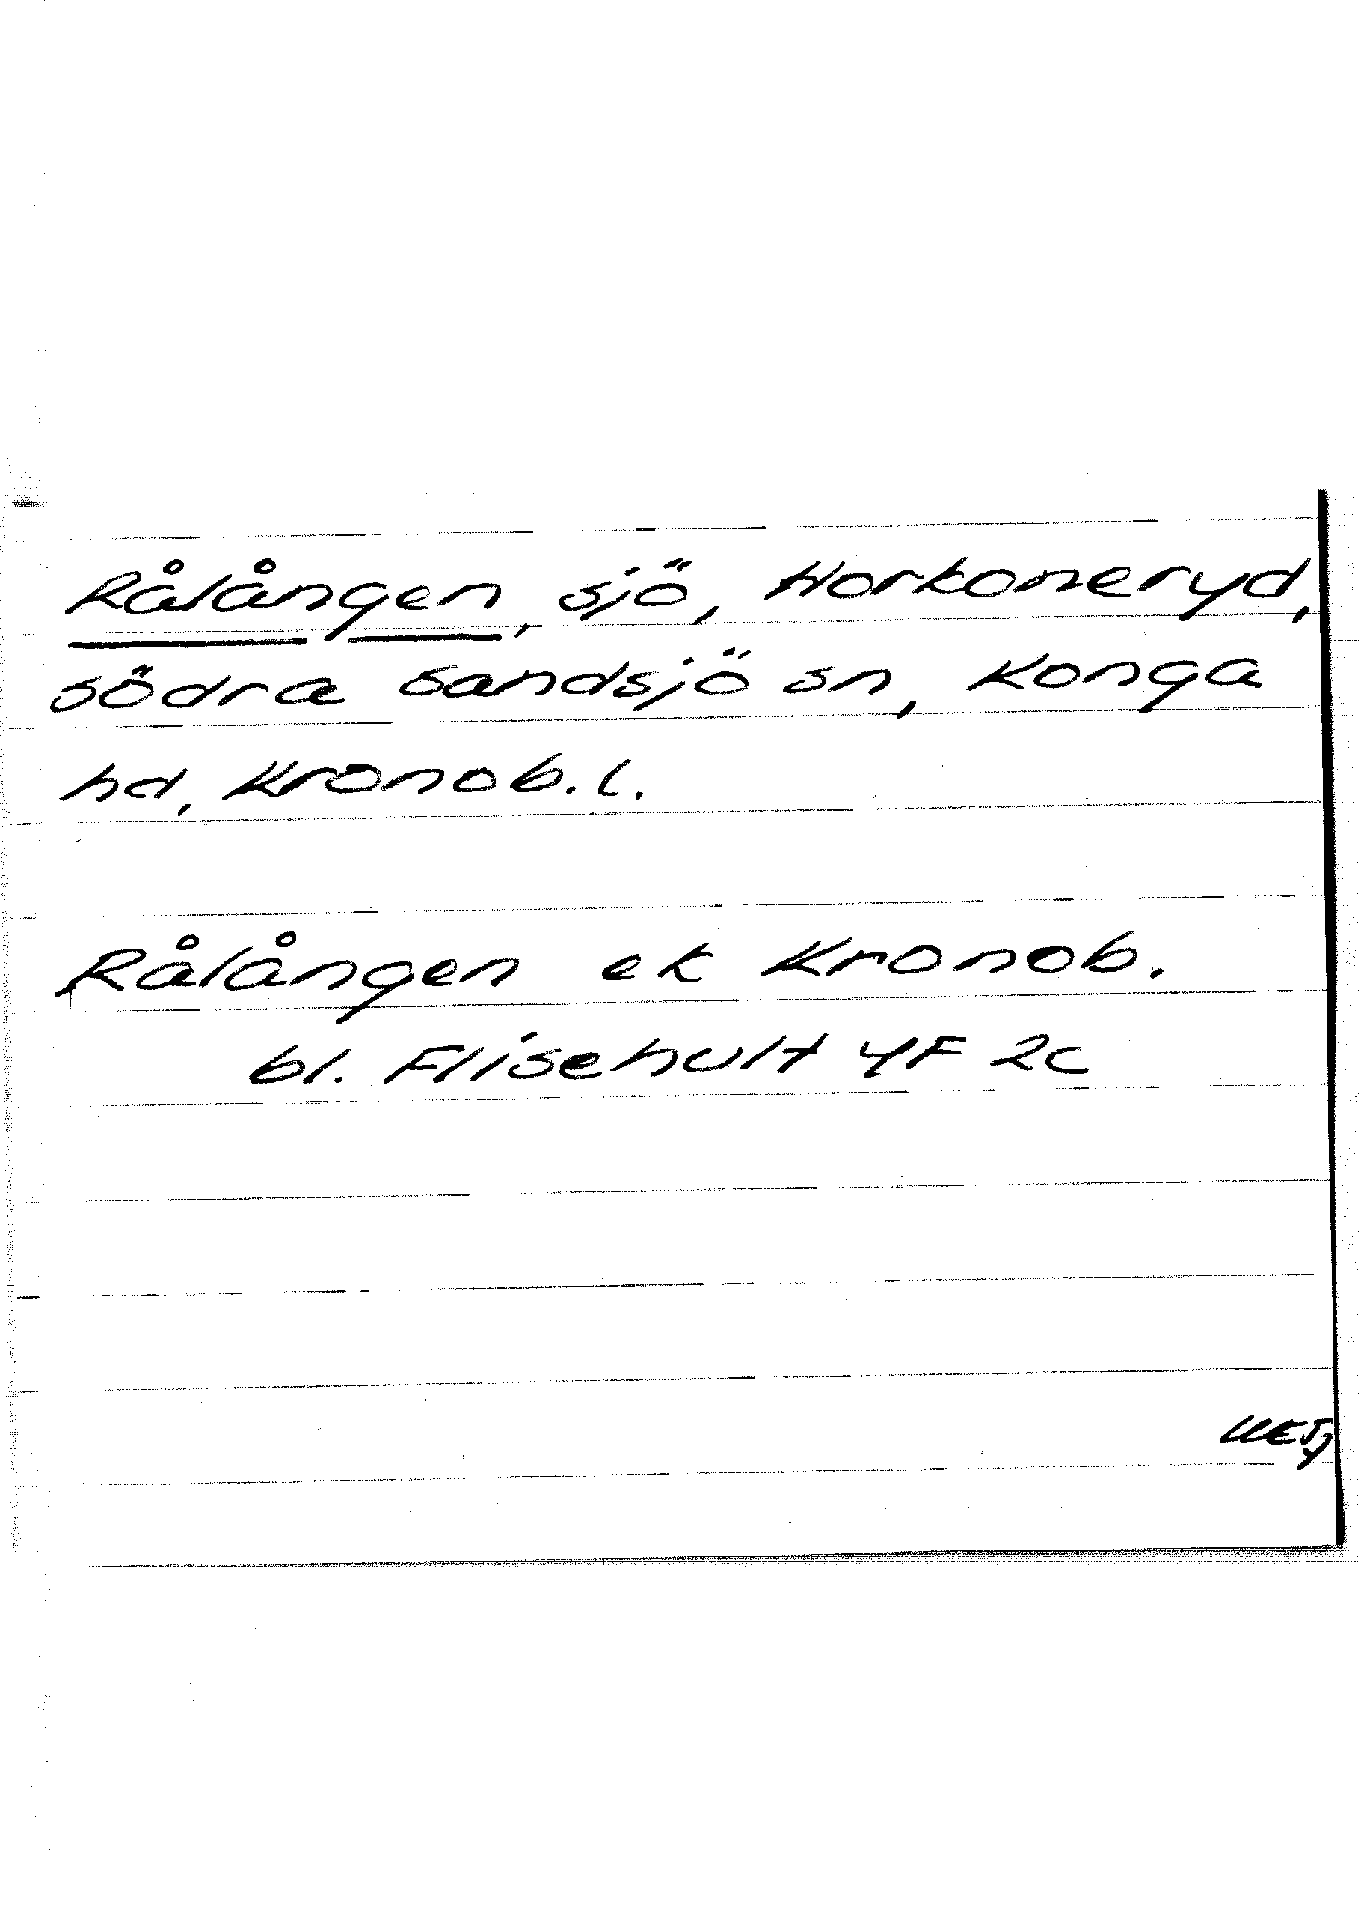 Rålången, sjö, Horkoneryd,
södra sandsjö sn, Konga
hd, Kronob. l.
Rålången ek Kronob.
bl. Flisehult 4F 2c